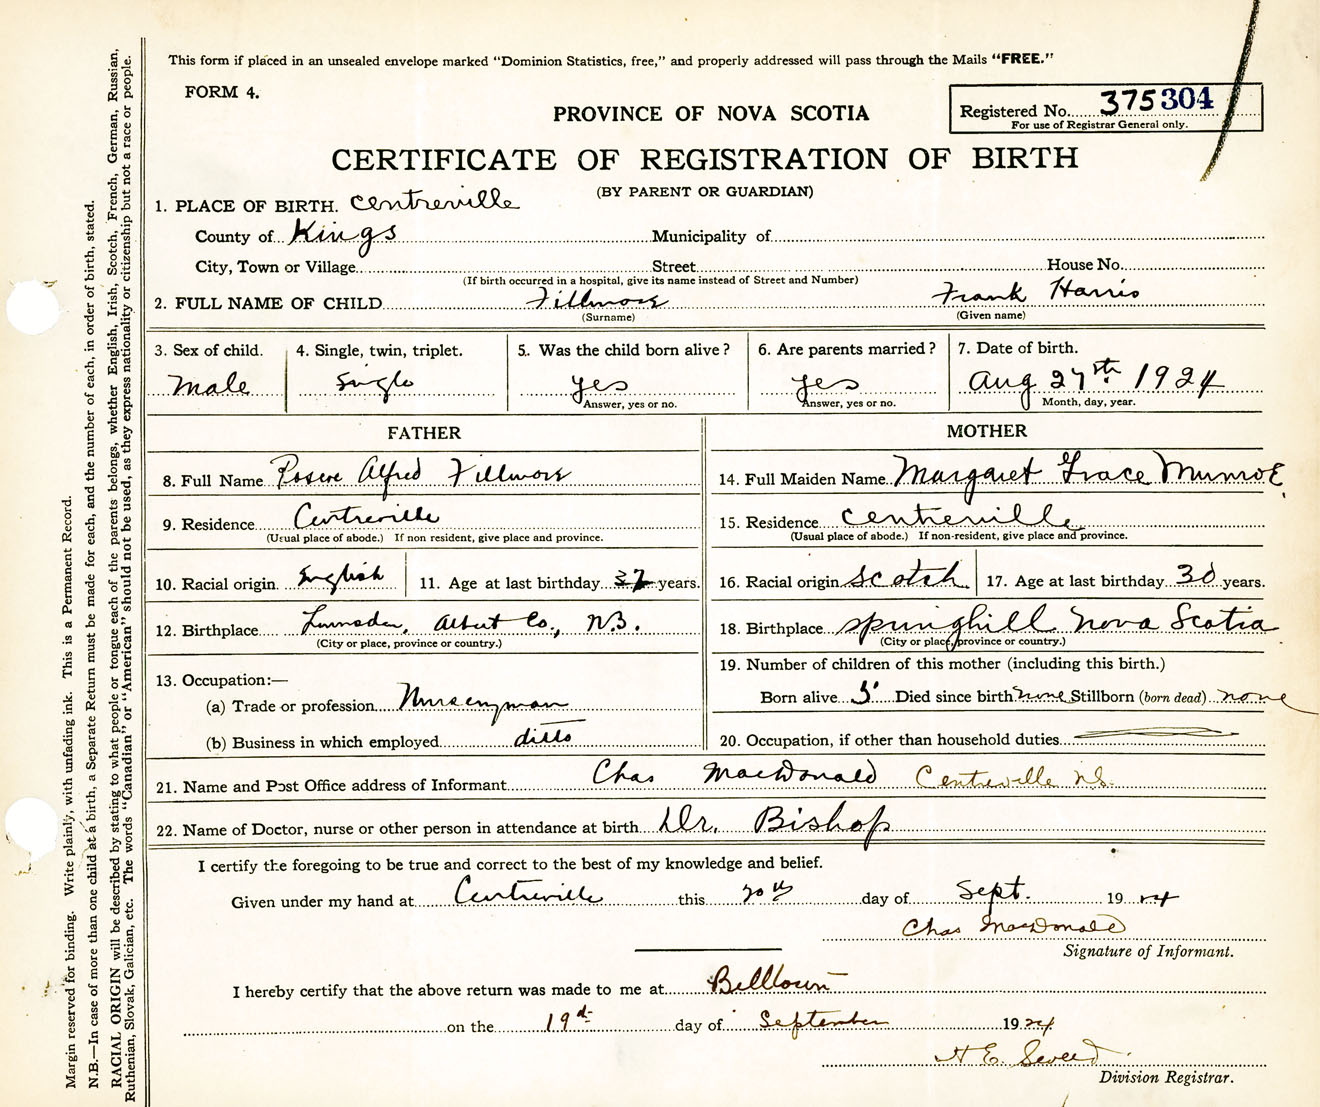 This form if placed in an unsealed envelope marked "Dominion Statistics, free," and properly addressed will pass through the Mails "FREE."
FORM 4.
PROVINCE OF NOVA SCOTIA
Registered No. 375304
For use of Registrar General only.
CERTIFICATE OF REGISTRATION OF BIRTH
(BY PARENT OR GUARDIAN)
1. PLACE OF BIRTH. Centreville
County of Kings Municipality of
City, Town or Village Street House No.
(If birth occurred in a hospital, give its name instead of Street and Number)
2. FULL NAME OF CHILD Fillmore Frank Harris
(Surname) (Given name)
3. Sex of child. 4. Single, twin, triplet. 5. Was the child born alive? 6. Are parents married? 7. Date of birth.
Male Single yes yes Aug 27th 1924
Answer, yes or no. Answer, yes or no. Month, day, year.
FATHER MOTHER
8. Full Name Roscoe Alfred Fillmore 14. Full Maiden Name Margaret Grace Munroe
9. Residence Centreville 15. Residence Centreville
(Usual place of abode.) If non resident, give place and province. (Usual place of abode.) If non-resident, give place and province.
10. Racial origin English 11. Age at last birthday 37 years. 16. Racial origin Scotch 17. Age at last birthday 30 years.
12. Birthplace Lumsden, Albert Co., N.B. 18. Birthplace Springhill Nova Scotia
(City or place, province or country.) (City or place, province or country.)
13. Occupation:— 19. Number of children of this mother (including this birth.)
(a) Trade or profession Nurseryman Born alive 5 Died since birth none Stillborn (born dead) none
(b) Business in which employed ditto 20. Occupation, if other than household duties
21. Name and Post Office address of Informant Chas MacDonald Centreville N.S.
22. Name of Doctor, nurse or other person in attendance at birth Dr. Bishop
I certify the foregoing to be true and correct to the best of my knowledge and belief.
Given under my hand at Centreville this day of Sept. 1924
Chas MacDonald
Signature of Informant.
I hereby certify that the above return was made to me at
on the 19th day of September 1924
H E
Division Registrar.
Margin reserved for binding. Write plainly, with unfading ink. This is a Permanent Record.
N.B.—In case of more than one child at a birth, a Separate Return must be made for each, and the number of each, in order of birth, stated.
RACIAL ORIGIN will be described by stating to what people or tongue each of the parents belongs, whether English, Irish, Scotch, French, German, Russian,
Ruthenian, Slovak, Galician, etc. The words "Canadian" or "American" should not be used, as they express nationality or citizenship but not a race or people.